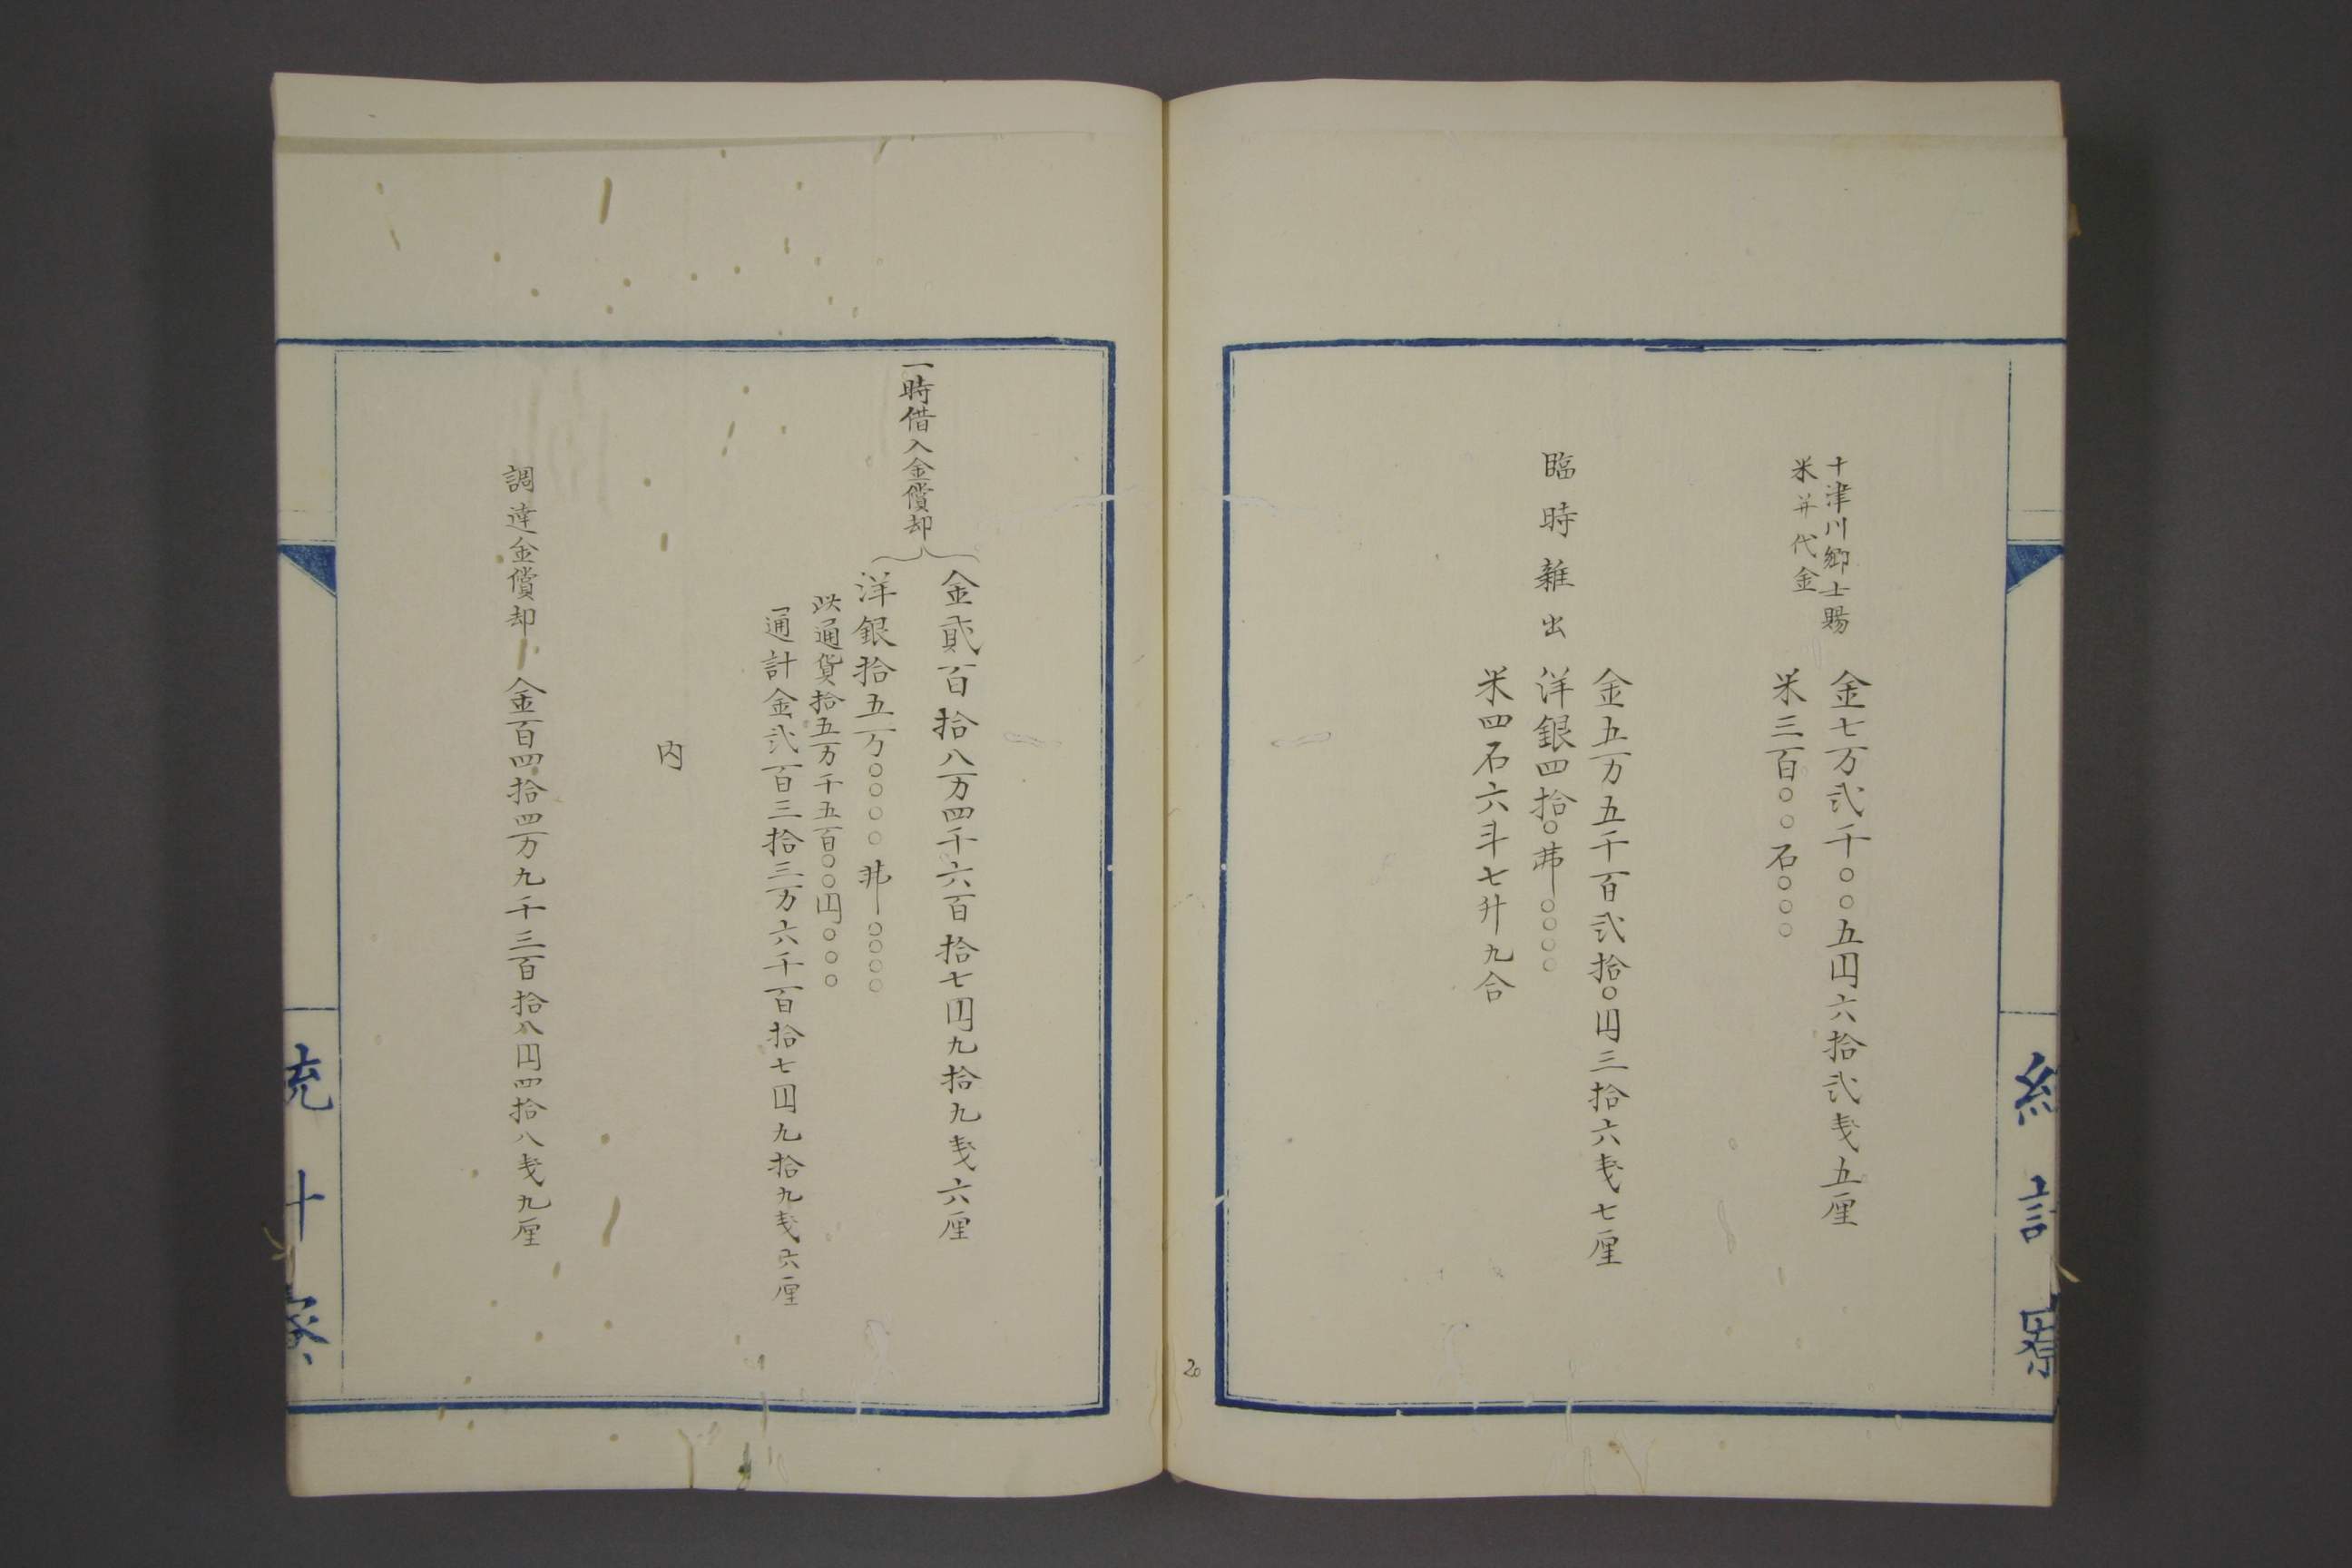 十津川郷士賜
米并代金
金七万弐千〇〇五円六拾弐戔五厘
米三百〇〇石〇〇〇
臨時雑出
金五万五千百弐拾〇円三拾六戔七厘
洋銀四拾〇弗〇〇〇〇
米四石六斗七升九合
統計寮
20
一時借入金償却
金貳百拾八万四千六百拾七円九拾九戔六厘
洋銀拾五万〇〇〇〇弗〇〇〇〇
此通貨拾五万千五百〇〇円〇〇〇
通計金弐百三拾三万六千百拾七円九拾九戔六厘
内
調達金償却 金百四拾四万九千三百拾八円四拾八戔九厘
統計寮